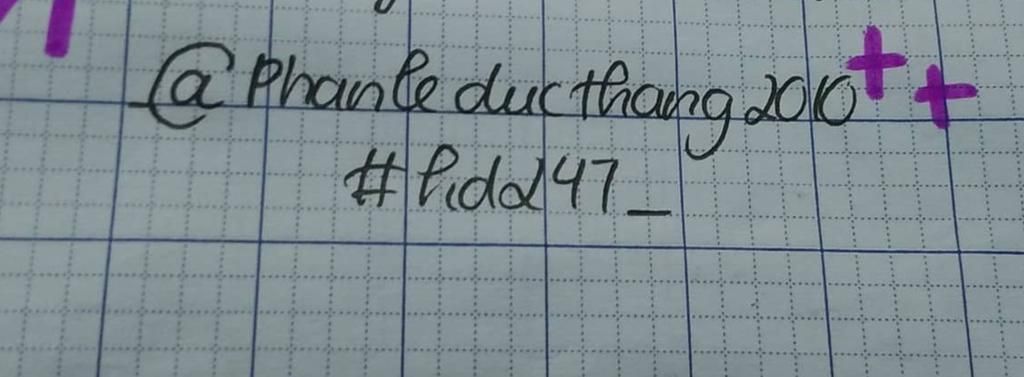 @phanleducthang2010
#lidd47_